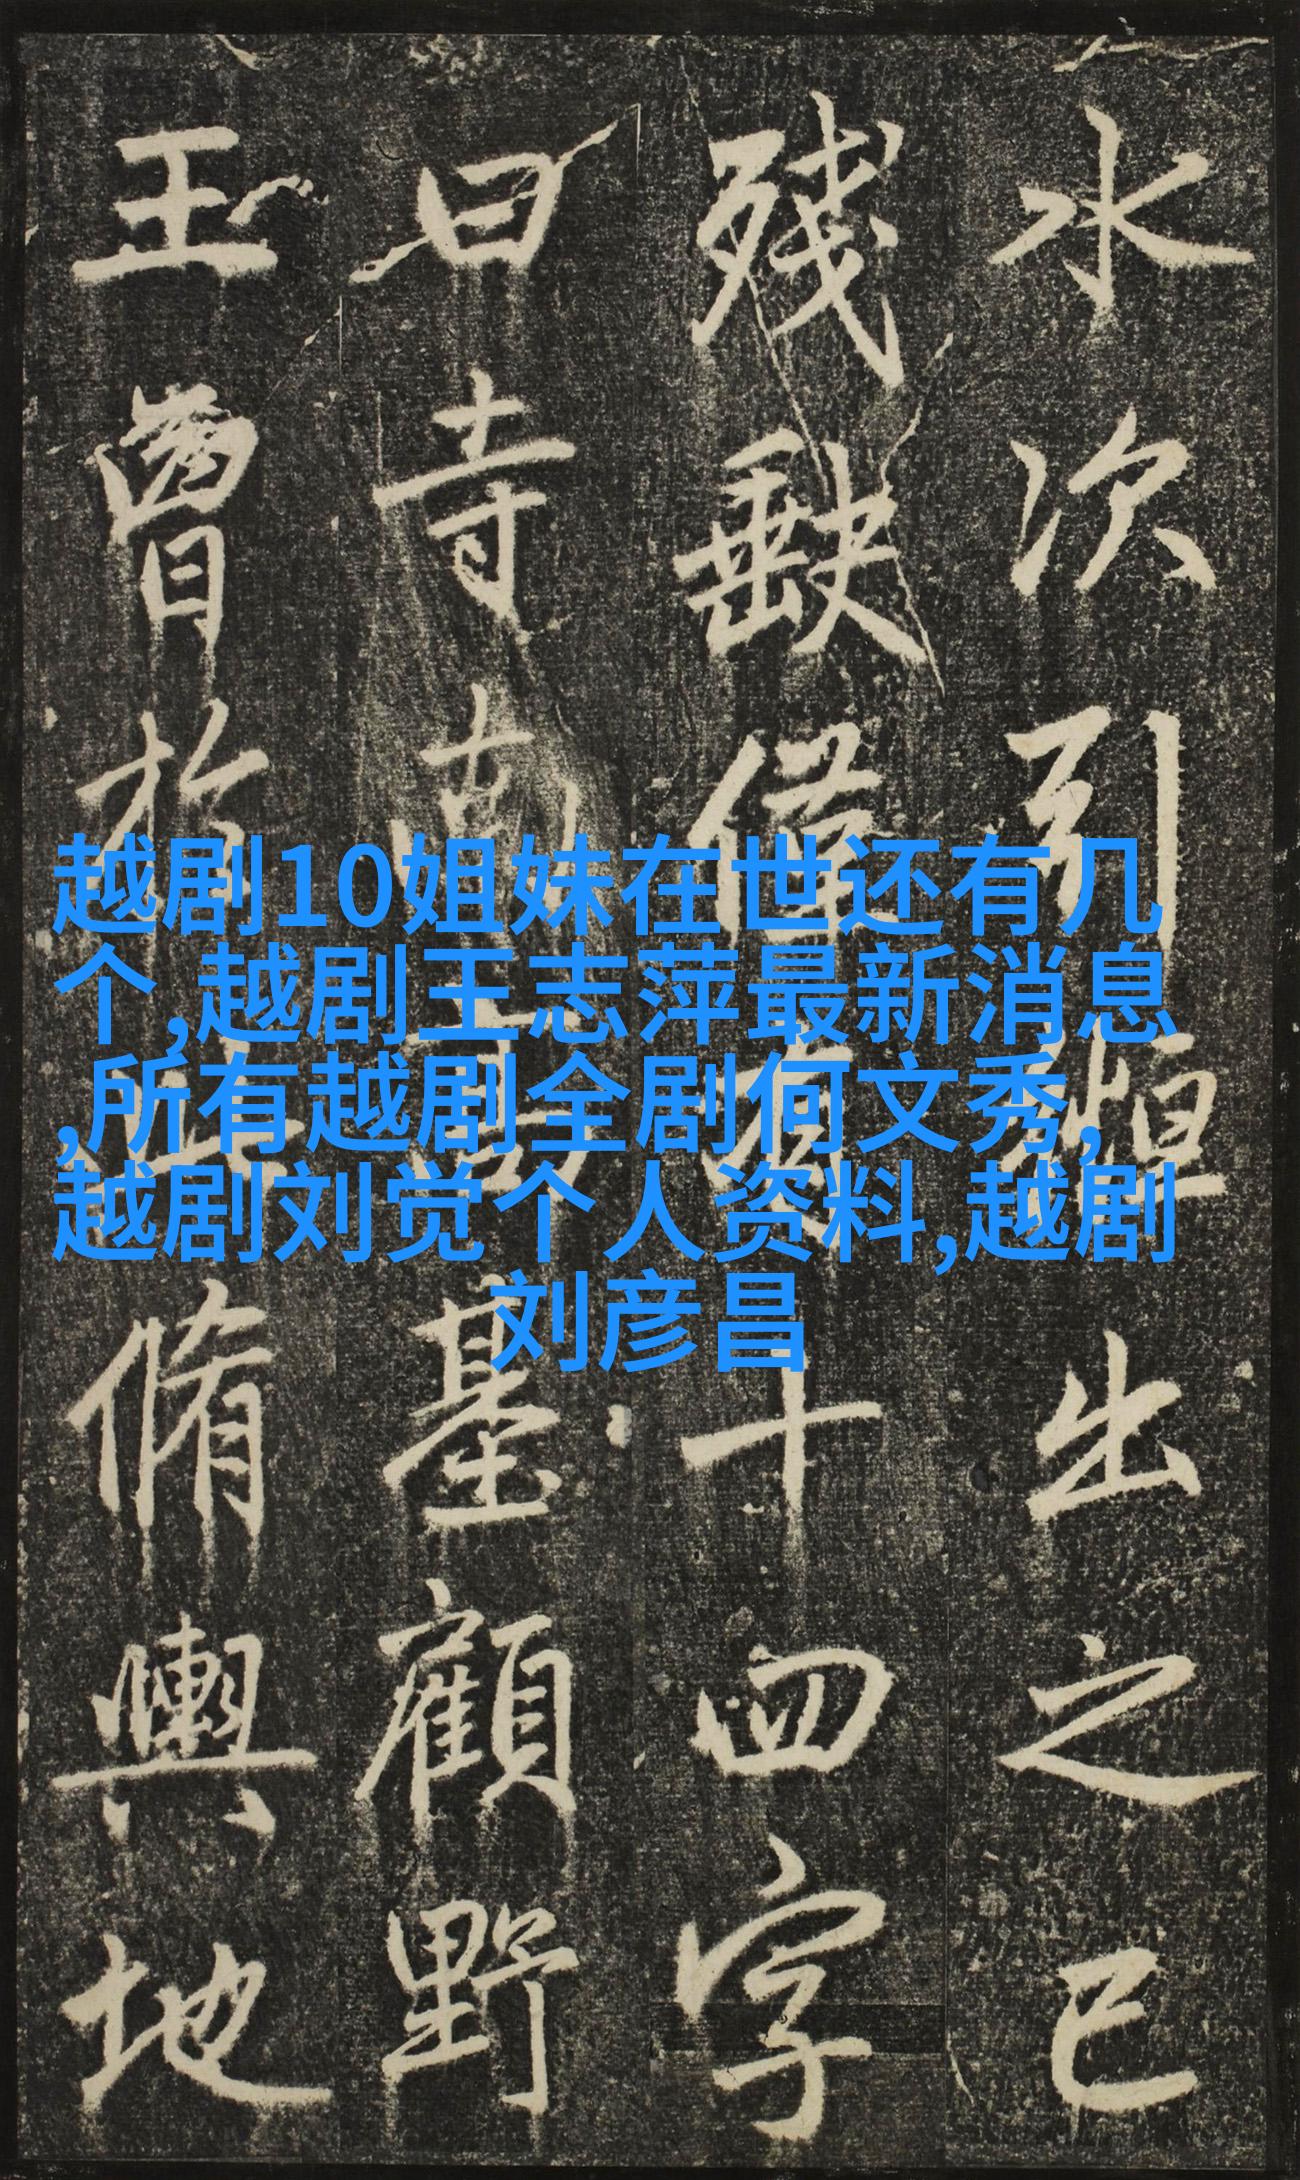 水次引出之已
殘缺僅十四字
曰寺南基顧野
王曾於脩輿地
越剧10姐妹在世还有几
个,越剧王志萍最新消息
,所有越剧全剧何文秀,
越剧刘觉个人资料,越剧
刘彦昌